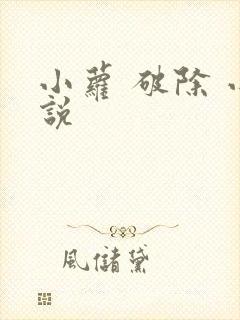 小蘿 破除 小
說
風儲黛